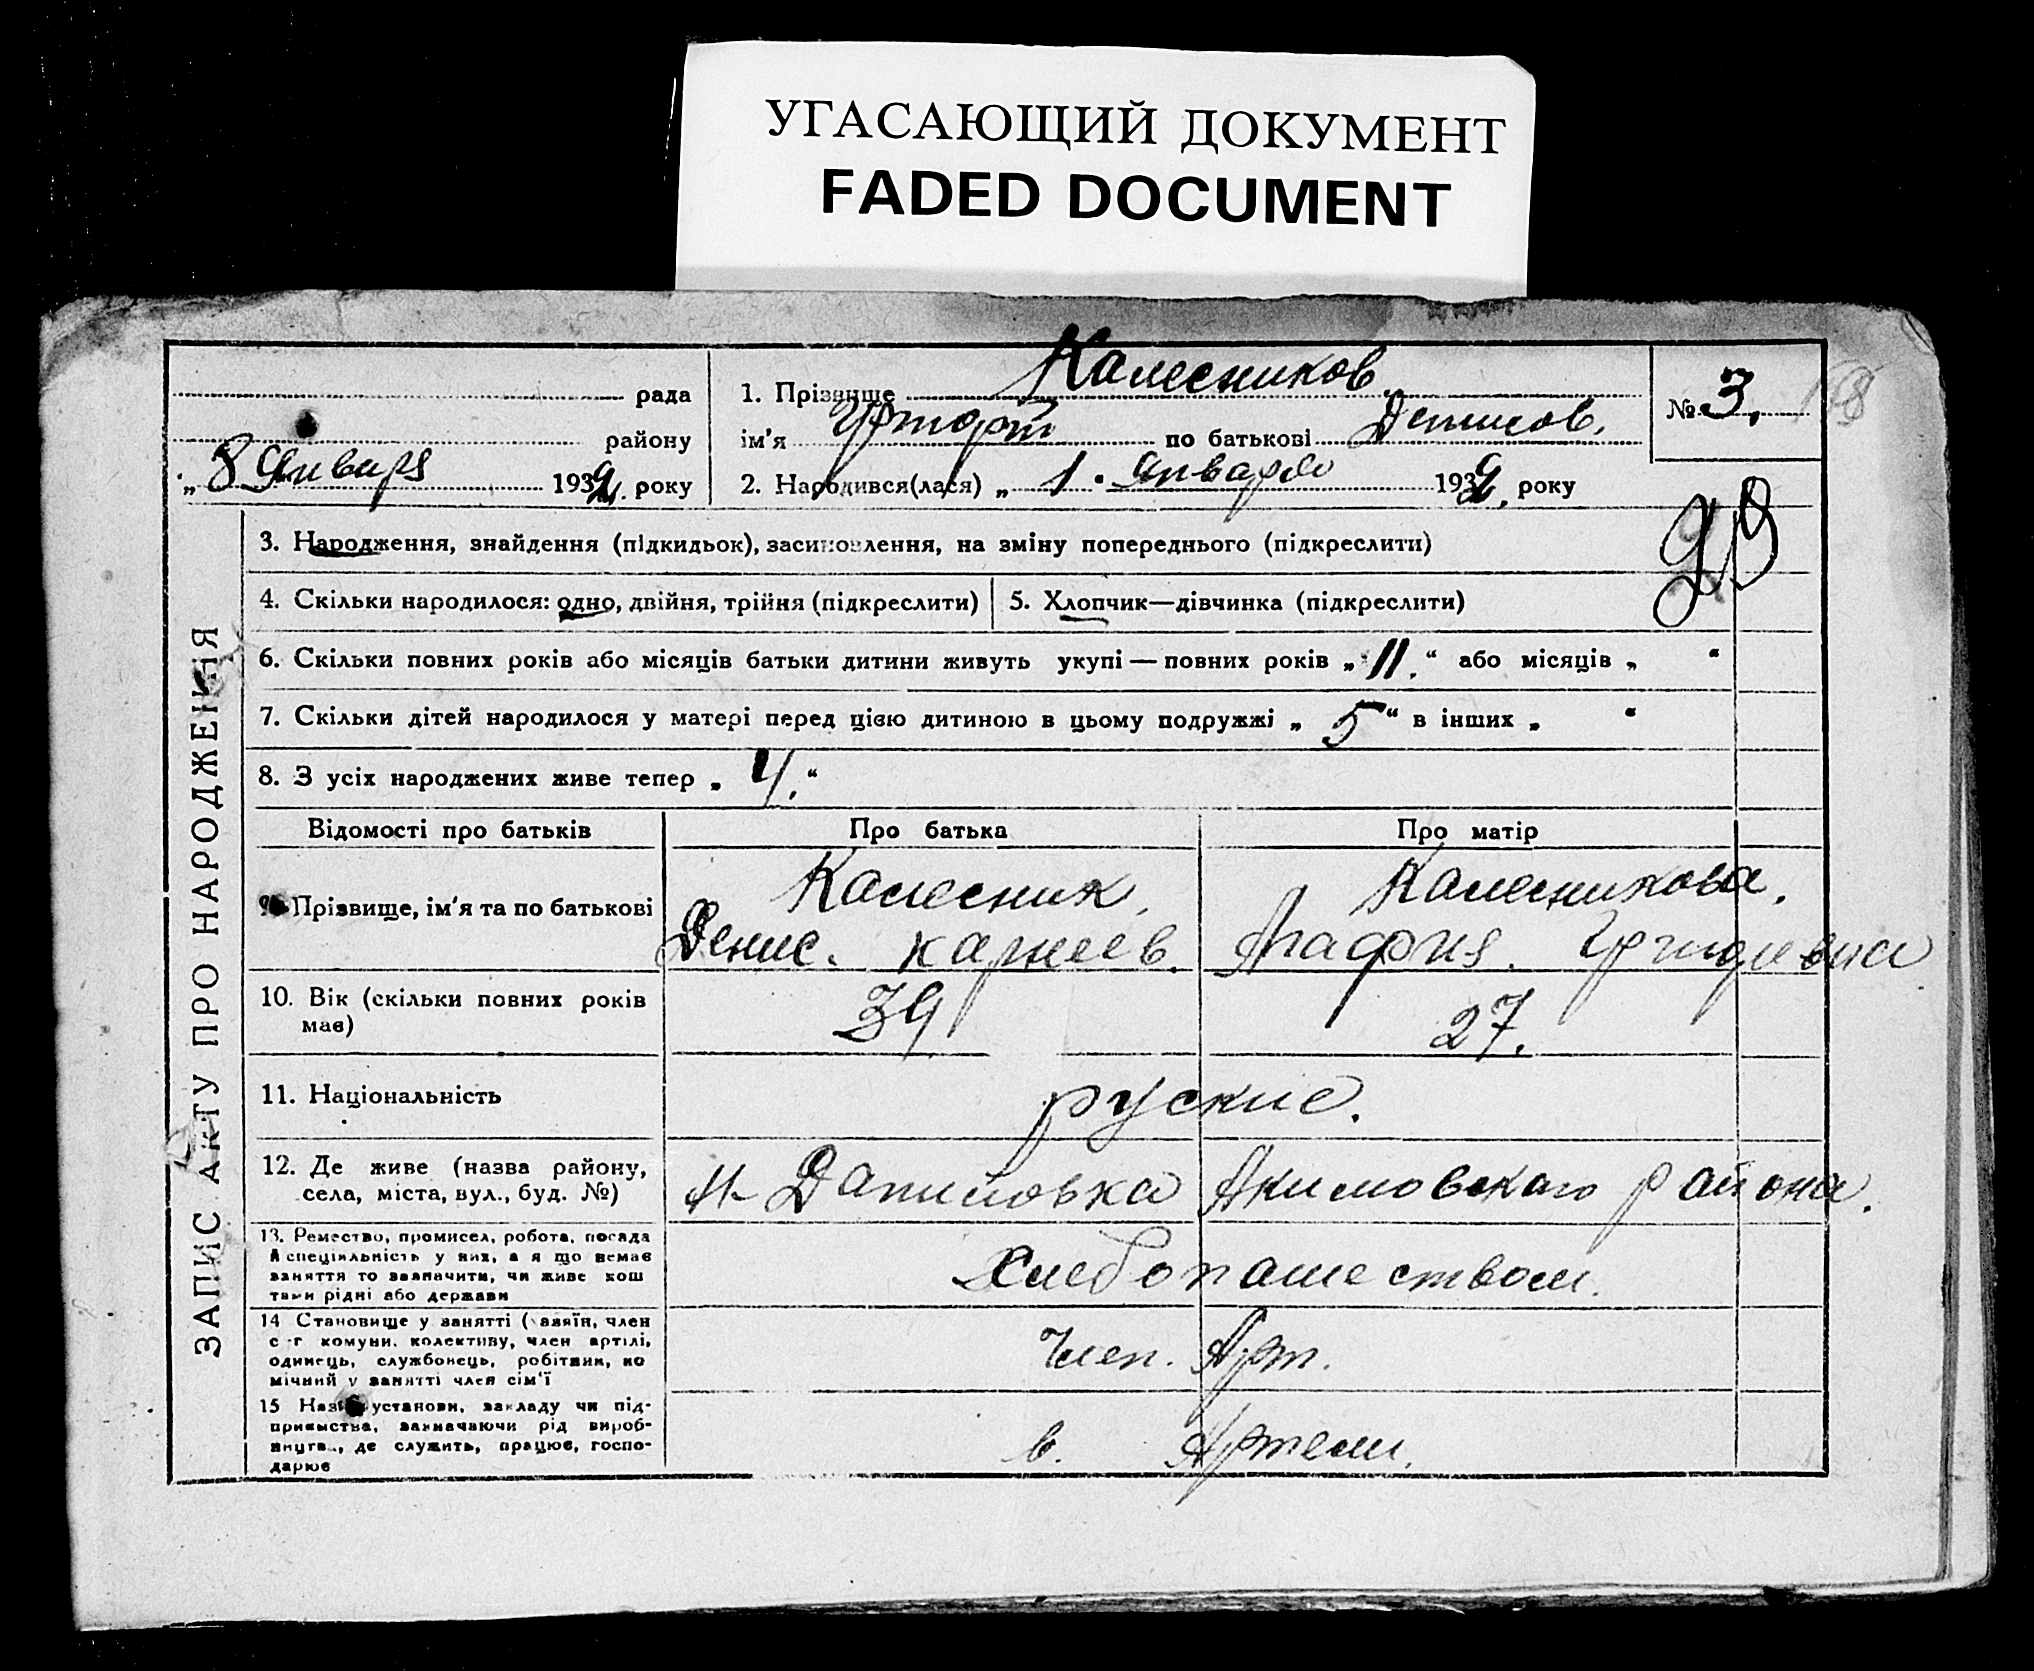 УГАСАЮЩИЙ ДОКУМЕНТ
FADED DOCUMENT
рада
району
„ 8 Января 1932. року
1. Прізвище Калесников
ім'я по батькові Денисов.
2. Народився(лася) „ 1 " Января 1932. року
№ 3.
ЗАПИС АКТУ ПРО НАРОДЖЕННЯ
3. Народження, знайдення (підкидьок), засиновлення, на зміну попереднього (підкреслити)
4. Скільки народилося: одно, двійня, трійня (підкреслити)
5. Хлопчик—дівчинка (підкреслити)
6. Скільки повних років або місяців батьки дитини живуть укупі — повних років „ 11. “ або місяців „ “
7. Скільки дітей народилося у матері перед цією дитиною в цьому подружжі „ 5 “ в інших „ “
8. З усіх народжених живе тепер „ 4. “
Відомості про батьків Про батька Про матір
9. Прізвище, ім'я та по батькові
Калесник.
Денис. карнеев.
Калесникова.
Агафия.
10. Вік (скільки повних років
має)
34
27.
11. Національність
руские.
12. Де живе (назва району,
села, міста, вул., буд. №)
Н-Даниловка Акимовскаго района.
13. Ремество, промисел, робота, посада
й спеціяльність у них, а я що немає
заняття то зазначити, чи живе кош
тами рідні або держави
Хлебопашеством.
14 Становище у занятті (хазяїн, член
с-г комуни, колективу, член артілі,
одинець, службонець, робітник, по
мічний у занятті член сім'ї
Член. Арт.
15 Назва установи, закладу чи під-
приємства, зазначаючи рід вироб-
ництва, де служить, працює, госпо-
дарює
в. Артели.